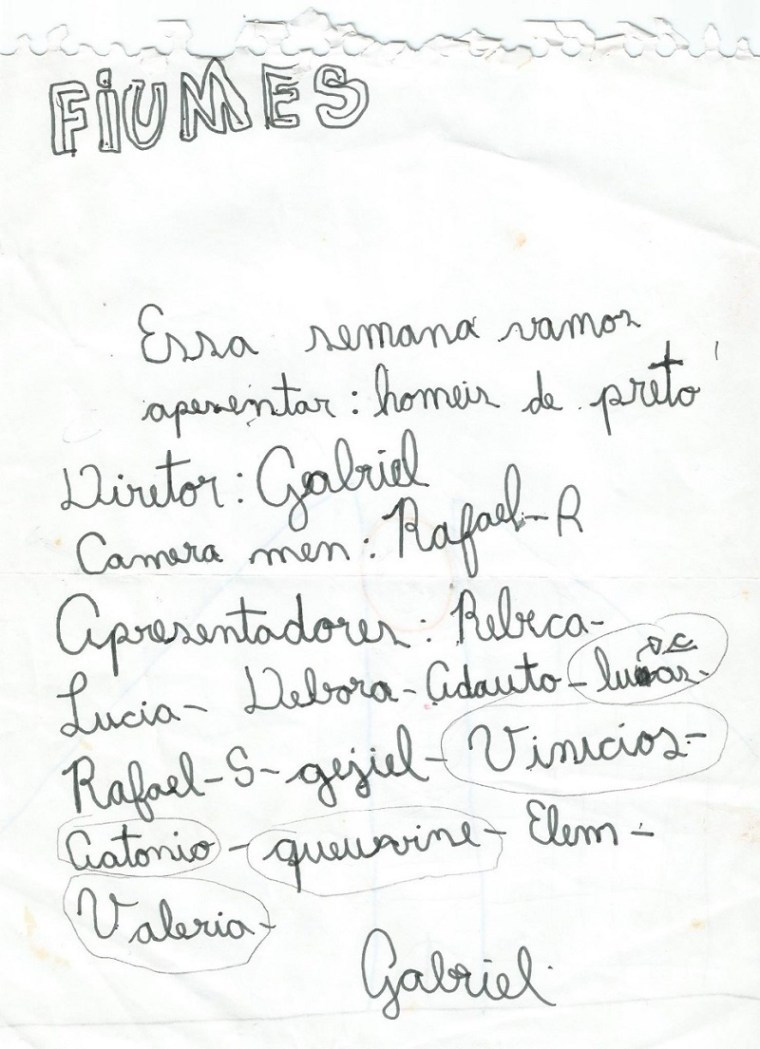 FiUMES
Essa semana vamos
apesentar: homeis de preto
Diretor: Gabriel
Camera men: Rafael-R
Apresentadores: Rebeca-
Lucia- Debora- Adauto- lucas-
Rafael-S- geziel- Vinicios-
Aatonio- queuvine- Elem-
Valeria-
Gabriel